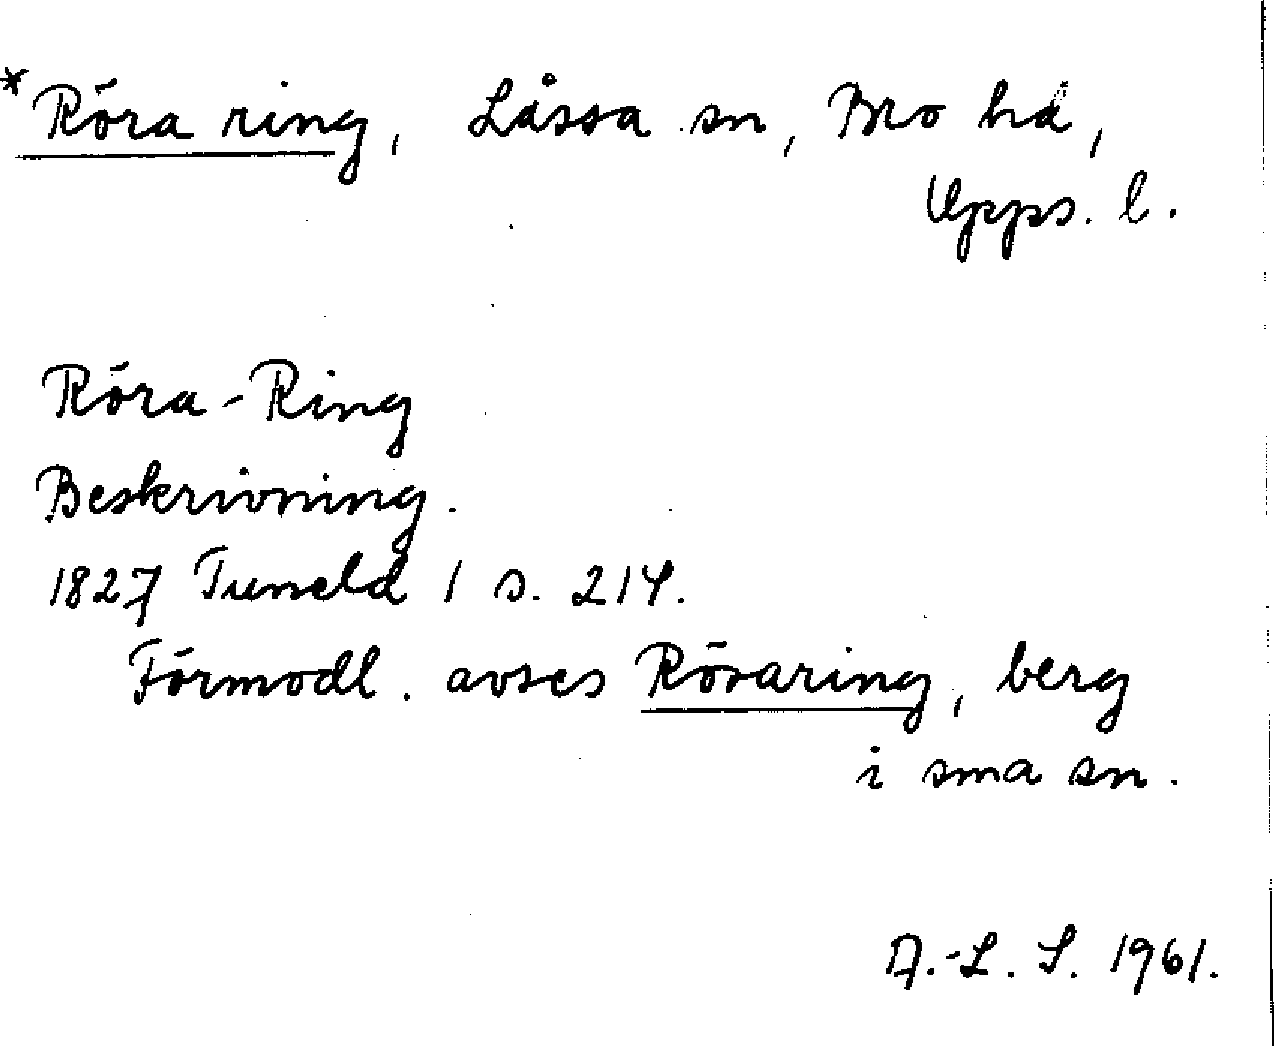 *Röra ring, Låssa sn, Bro hd,
Upps. l.
Röra-Ring
Beskrivning.
1827 Tuneld 1 s. 214.
Förmodl. avses Rösaring, berg
i sma sn.
A.-L. S. 1961.